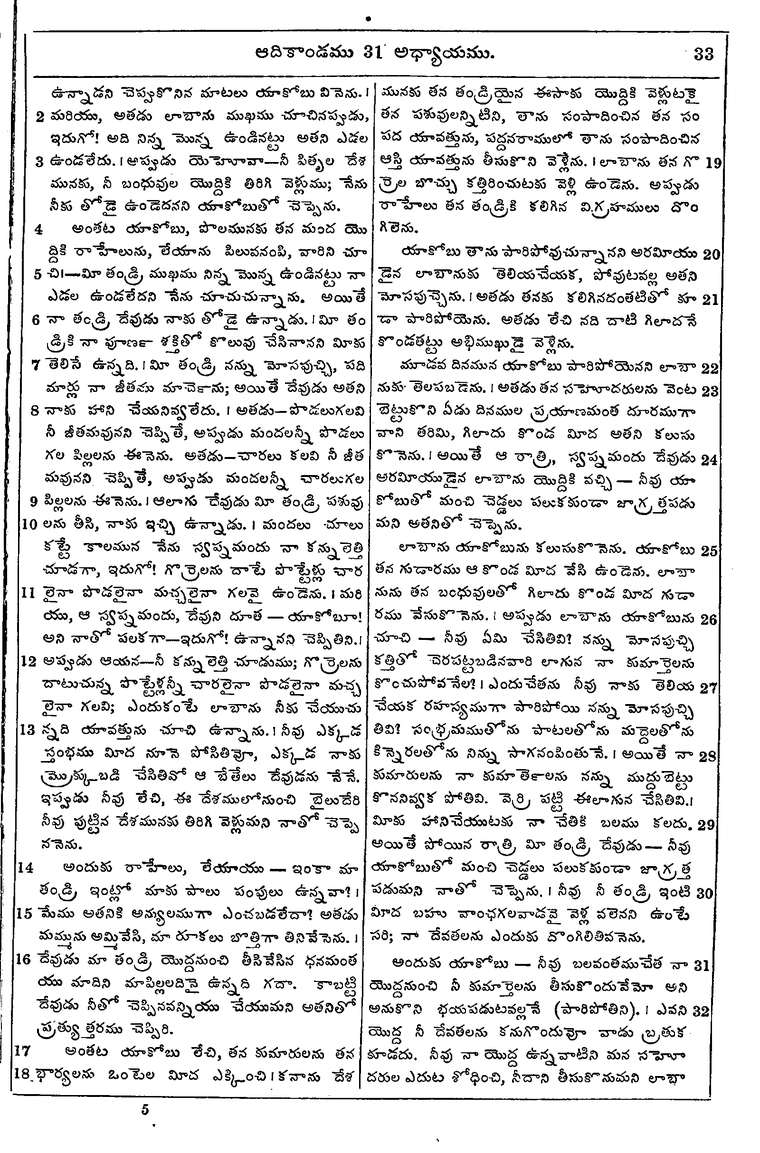 ఆదికాండము 31 అధ్యాయము. 33
ఉన్నాడని చెప్పుకొనిన మాటలు యాకోబు వినెను. ।
2 మరియు, అతడు లాబాను ముఖము చూచినప్పుడు,
ఇదుగో! అది నిన్న మొన్న ఉండినట్టు అతని ఎడల
3 ఉండలేదు. । అప్పుడు యెహోవా—నీ పితృల దేశ
మునకు, నీ బంధువుల యొద్దికి తిరిగి వెళ్లుము; నేను
నీకు తోడై ఉండెదనని యాకోబుతో చెప్పెను.
4 అంతట యాకోబు, పొలమునకు తన మంద యొ
ద్దికి రాహేలును, లేయాను పిలువనంపి, వారిని చూ
5 చి।—మీ తండ్రి ముఖము నిన్న మొన్న ఉండినట్టు నా
ఎడల ఉండలేదని నేను చూచుచున్నాను. అయితే
6 నా తండ్రి దేవుడు నాకు తోడై ఉన్నాడు. । మీ తం
డ్రికి నా పూర్ణ శక్తితో కొలువు చేసినానని మీకు
7 తెలిసే ఉన్నది. । మీ తండ్రి నన్ను మోసపుచ్చి, పది
మార్లు నా జీతము మార్చెను; అయితే దేవుడు అతని
8 నాకు హాని చేయనివ్వలేదు. । అతడు—పొడలుగలవి
నీ జీతమవునని చెప్పితే, అప్పుడు మందలన్నీ పొడలు
గల పిల్లలను ఈనెను. అతడు—చారలు కలవి నీ జీత
మవునని చెప్పితే, అప్పుడు మందలన్నీ చారలుగల
9 పిల్లలను ఈనెను. । ఆలాగు దేవుడు మీ తండ్రి పశువు
10 లను తీసి, నాకు ఇచ్చి ఉన్నాడు. । మందలు చూలు
కట్టే కాలమున నేను స్వప్నమందు నా కన్నులెత్తి
చూడగా, ఇదుగో! గొర్రెలను దాటే పొట్టేళ్లు చార
11 లైనా పొడలైనా మచ్చలైనా గలవై ఉండెను. । మరి
యు, ఆ స్వప్నమందు, దేవుని దూత — యాకోబూ!
అని నాతో పలకగా—ఇదుగో! ఉన్నానని చెప్పితిని. ।
12 అప్పుడు ఆయన—నీ కన్నులెత్తి చూడుము; గొర్రెలను
దాటుచున్న పొట్టేళ్లన్నీ చారలైనా పొడలైనా మచ్చ
లైనా గలవి; ఎందుకంటే లాబాను నీకు చేయుచు
13 న్నది యావత్తును చూచి ఉన్నాను. । నీవు ఎక్కడ
స్తంభము మీద నూనె పోసితివో, ఎక్కడ నాకు
మ్రొక్కుబడి చేసితివో ఆ బేతేలు దేవుడను నేనే.
ఇప్పుడు నీవు లేచి, ఈ దేశములోనుంచి బైలుదేరి
నీవు పుట్టిన దేశమునకు తిరిగి వెళ్లుమని నాతో చెప్పె
ననెను.
14 అందుకు రాహేలు, లేయాయు — ఇంకా మా
తండ్రి ఇంట్లో మాకు పాలు పంపులు ఉన్నవా? ।
15 మేము అతనికి అన్యులముగా ఎంచబడలేదా? అతడు
మమ్మును అమ్మివేసి, మా రూకలు బొత్తిగా తినివేసెను. ।
16 దేవుడు మా తండ్రి యొద్దనుంచి తీసివేసిన ధనమంత
యు మాదిని మాపిల్లలదినై ఉన్నది గదా. కాబట్టి
దేవుడు నీతో చెప్పినవన్నియు చేయుమని అతనితో
ప్రత్యుత్తరము చెప్పిరి.
17 అంతట యాకోబు లేచి, తన కుమారులను తన
18 భార్యలను ఒంటెల మీద ఎక్కించి । కనాను దేశ
మునకు తన తండ్రియైన ఈసాకు యొద్దికి వెళ్లుటకై
తన పశువులన్నిటిని, తాను సంపాదించిన తన సం
పద యావత్తును, పద్దనరాములో తాను సంపాదించిన
ఆస్తి యావత్తును తీసుకొని వెళ్లెను. । లాబాను తన గొ 19
ర్రెల బొచ్చు కత్తిరించుటకు వెళ్లి ఉండెను. అప్పుడు
రాహేలు తన తండ్రికి కలిగిన విగ్రహములు దొం
గిలెను.
యాకోబు తాను పారిపోవుచున్నానని అరమీయు 20
డైన లాబానుకు తెలియచేయక, పోవుటవల్ల అతని
మోసపుచ్చెను. । అతడు తనకు కలిగినదంతటితో కూ 21
డా పారిపోయెను. అతడు లేచి నది దాటి గిలాదనే
కొండతట్టు అభిముఖుడై వెళ్లెను.
మూడవ దినమున యాకోబు పారిపోయెనని లాబా 22
నుకు తెలపబడెను. । అతడు తన సహోదరులను వెంట 23
బెట్టుకొని ఏడు దినముల ప్రయాణమంత దూరముగా
వాని తరిమి, గిలాదు కొండ మీద అతని కలుసు
కొనెను. । అయితే ఆ రాత్రి, స్వప్నమందు దేవుడు 24
అరమీయుడైన లాబాను యొద్దికి వచ్చి — నీవు యా
కోబుతో మంచి చెడ్డలు పలుకకుండా జాగ్రత్తపడు
మని అతనితో చెప్పెను.
లాబాను యాకోబును కలుసుకొనెను. యాకోబు 25
తన గుడారము ఆ కొండ మీద వేసి ఉండెను. లాబా
నును తన బంధువులతో గిలాదు కొండ మీద గుడా
రము వేసుకొనెను. । అప్పుడు లాబాను యాకోబును 26
చూచి — నీవు ఏమి చేసితివి? నన్ను మోసపుచ్చి
కత్తితో చెరపట్టబడినవారి లాగున నా కుమార్తెలను
కొంచుపోవనేల? । ఎందుచేతను నీవు నాకు తెలియ 27
చేయక రహస్యముగా పారిపోయి నన్ను మోసపుచ్చి
తివి? సంభ్రమముతోను పాటలతోను మద్దెలతోను
కిన్నెరలతోను నిన్ను సాగనంపింతునే. । అయితే నా 28
కుమారులను నా కుమార్తెలను నన్ను ముద్దుబెట్టు
కొననివ్వక పోతివి. వెర్రి పట్టి ఈలాగున చేసితివి. ।
మీకు హానిచేయుటకు నా చేతికి బలము కలదు. 29
అయితే పోయిన రాత్రి, మీ తండ్రి దేవుడు — నీవు
యాకోబుతో మంచి చెడ్డలు పలుకకుండా జాగ్రత్త
పడుమని నాతో చెప్పెను. । నీవు నీ తండ్రి ఇంటి 30
మీద బహు వాంఛగలవాడవై వెళ్ల వలెనని ఉంటే
సరి; నా దేవతలను ఎందుకు దొంగిలితివనెను.
అందుకు యాకోబు — నీవు బలవంతముచేత నా 31
యొద్దనుంచి నీ కుమార్తెలను తీసుకొందువేమో అని
అనుకొని భయపడుటవల్లనే (పారిపోతిని). । ఎవని 32
యొద్ద నీ దేవతలను కనుగొందువో వాడు బ్రతుక
కూడదు. నీవు నా యొద్ద ఉన్నవాటిని మన సహో
దరుల ఎదుట శోధించి, నీదాని తీసుకొనుమని లాబా
5